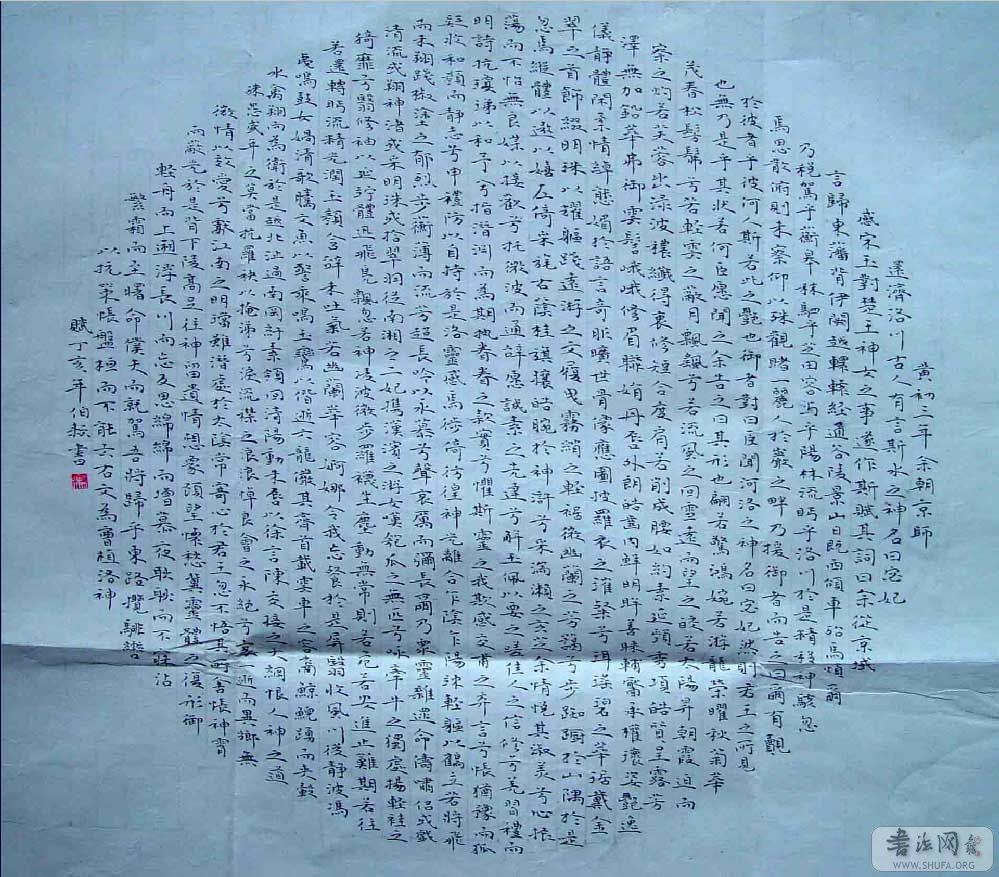 黄初三年余朝京師
還濟洛川古人有言斯水之神名曰宓妃
感宋玉對楚王神女之事遂作斯賦其詞曰余從京城
言歸東藩背伊闕越轘轅經通谷陵景日既西傾車殆馬煩爾
乃税駕乎蘅皋秣駟乎芝田容與乎陽林流眄乎洛川於是精移神駭忽
焉思散俯則未察仰以殊觀睹一麗人於巖之畔乃援御者而告之曰爾有覿
於彼者乎彼何人斯若此之艷也御者對曰臣聞河洛之神名曰宓妃然則君王之所見
也無乃是乎其狀若何臣愿聞之余告之曰其形也翩若驚鴻婉若游龍榮曜秋菊華
茂春松髣髴兮若輕雲之蔽月飄颻兮若流風之回雪遠而望之皎若太陽昇朝霞迫而
察之灼若芙蓉出淥波穠纖得衷修短合度肩若削成腰如約素延頸秀項皓質呈露芳
澤無加鉛華弗御雲髻峨峨修眉聯娟丹唇外朗皓齒内鮮明眸善睞輔靨承權瓌姿艷逸
儀靜體閑柔情綽態媚於語言奇服曠世骨像應圖披羅衣之璀粲兮珥瑤碧之華琚戴金
翠之首飾綴明珠以耀軀踐遠游之文履曳霧綃之輕裾微幽蘭之芳藹兮步踟躕於山隅於是
忽焉縱體以遨以嬉左倚采旄右蔭桂旗攘皓腕於神滸兮采湍瀨之玄芝余情悅其淑美兮心振
蕩而不怡無良媒以接歡兮托微波而通辭愿誠素之先達兮解玉佩以要之嗟佳人之信修兮羌習禮而
明詩抗瓊珶以和予兮指潛淵而為期執眷眷之款實兮懼斯靈之我欺感交甫之弃言兮悵猶豫而狐
疑收和顏而靜志兮申禮防以自持於是洛靈感焉徙倚彷徨神光離合乍陰乍陽竦輕軀以鶴立若將飛
而未翔踐椒塗之郁烈步蘅薄而流芳超長吟以永慕兮聲哀厲而彌長爾乃衆靈雜遝命儔嘯侶或戲
清流或翔神渚或采明珠或拾翠羽從南湘之二妃攜漢濱之游女嘆匏瓜之無匹兮咏牽牛之獨處揚輕袿之
猗靡兮翳修袖以延佇體迅飛鳧飄忽若神淩波微步羅襪生塵動無常則若危若安進止難期若往
若還轉眄流精光潤玉顏含辭未吐氣若幽蘭華容婀娜令我忘餐於是屏翳收風川後靜波馮
夷鳴鼓女媧清歌騰文魚以警乘鳴玉鸞以偕逝六龍儼其齊首載雲車之容裔鯨鯢踴而夾轂
水禽翔而為衛於是越北沚過南岡紆素領回清陽動朱唇以徐言陳交接之大綱恨人神之道
殊怨盛年之莫當抗羅袂以掩涕兮淚流襟之浪浪悼良會之永絕兮哀一逝而異鄉無
微情以效愛兮獻江南之明璫雖潛處於太陰常寄心於君王忽不悟其所舍悵神霄
而蔽光於是背下陵高足往神留遺情想象顧望懷愁冀靈體之復形御
輕舟而上溯浮長川而忘反思綿綿而增慕夜耿耿而不寐沾
繁霜而至曙命僕夫而就駕吾將歸乎東路攬騑轡
以抗策悵盤桓而不能去右文為曹植洛神
賦丁亥年伯書
书法网
WWW.SHUFA.ORG